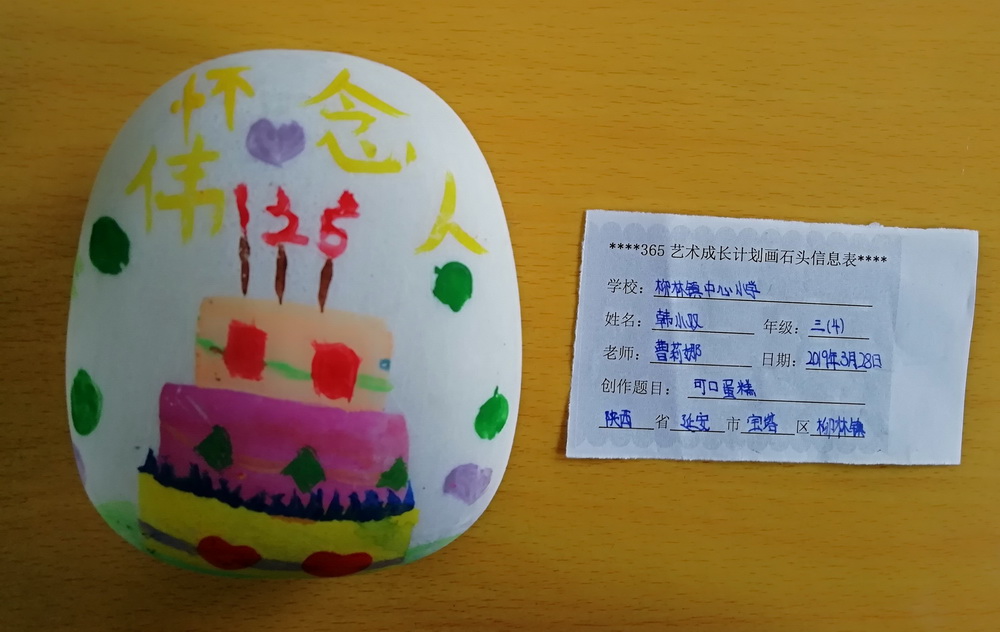 怀念
伟人
126
****365 艺术成长计划画石头信息表****
学校：柳林镇中心小学
姓名：韩小双 年级：三(4)
老师：曹莉娜 日期：2019年3月28日
创作题目：可口蛋糕
陕西 省 延安 市 宝塔 区 柳林镇